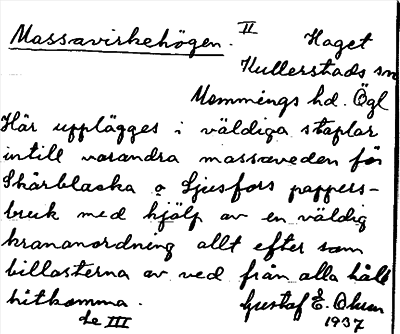 Massavirkehögen. II Haget
Kullerstads sn
Memmings hd. Ögl
Här upplägges i väldiga staplar
intill varandra massaveden för
Skärblacka o Ljusfors pappers-
bruk med hjälp av en väldig
krananordning allt efter som
billasterna av ved från alla håll
hitkomma. Gustaf E.
Se III 1937